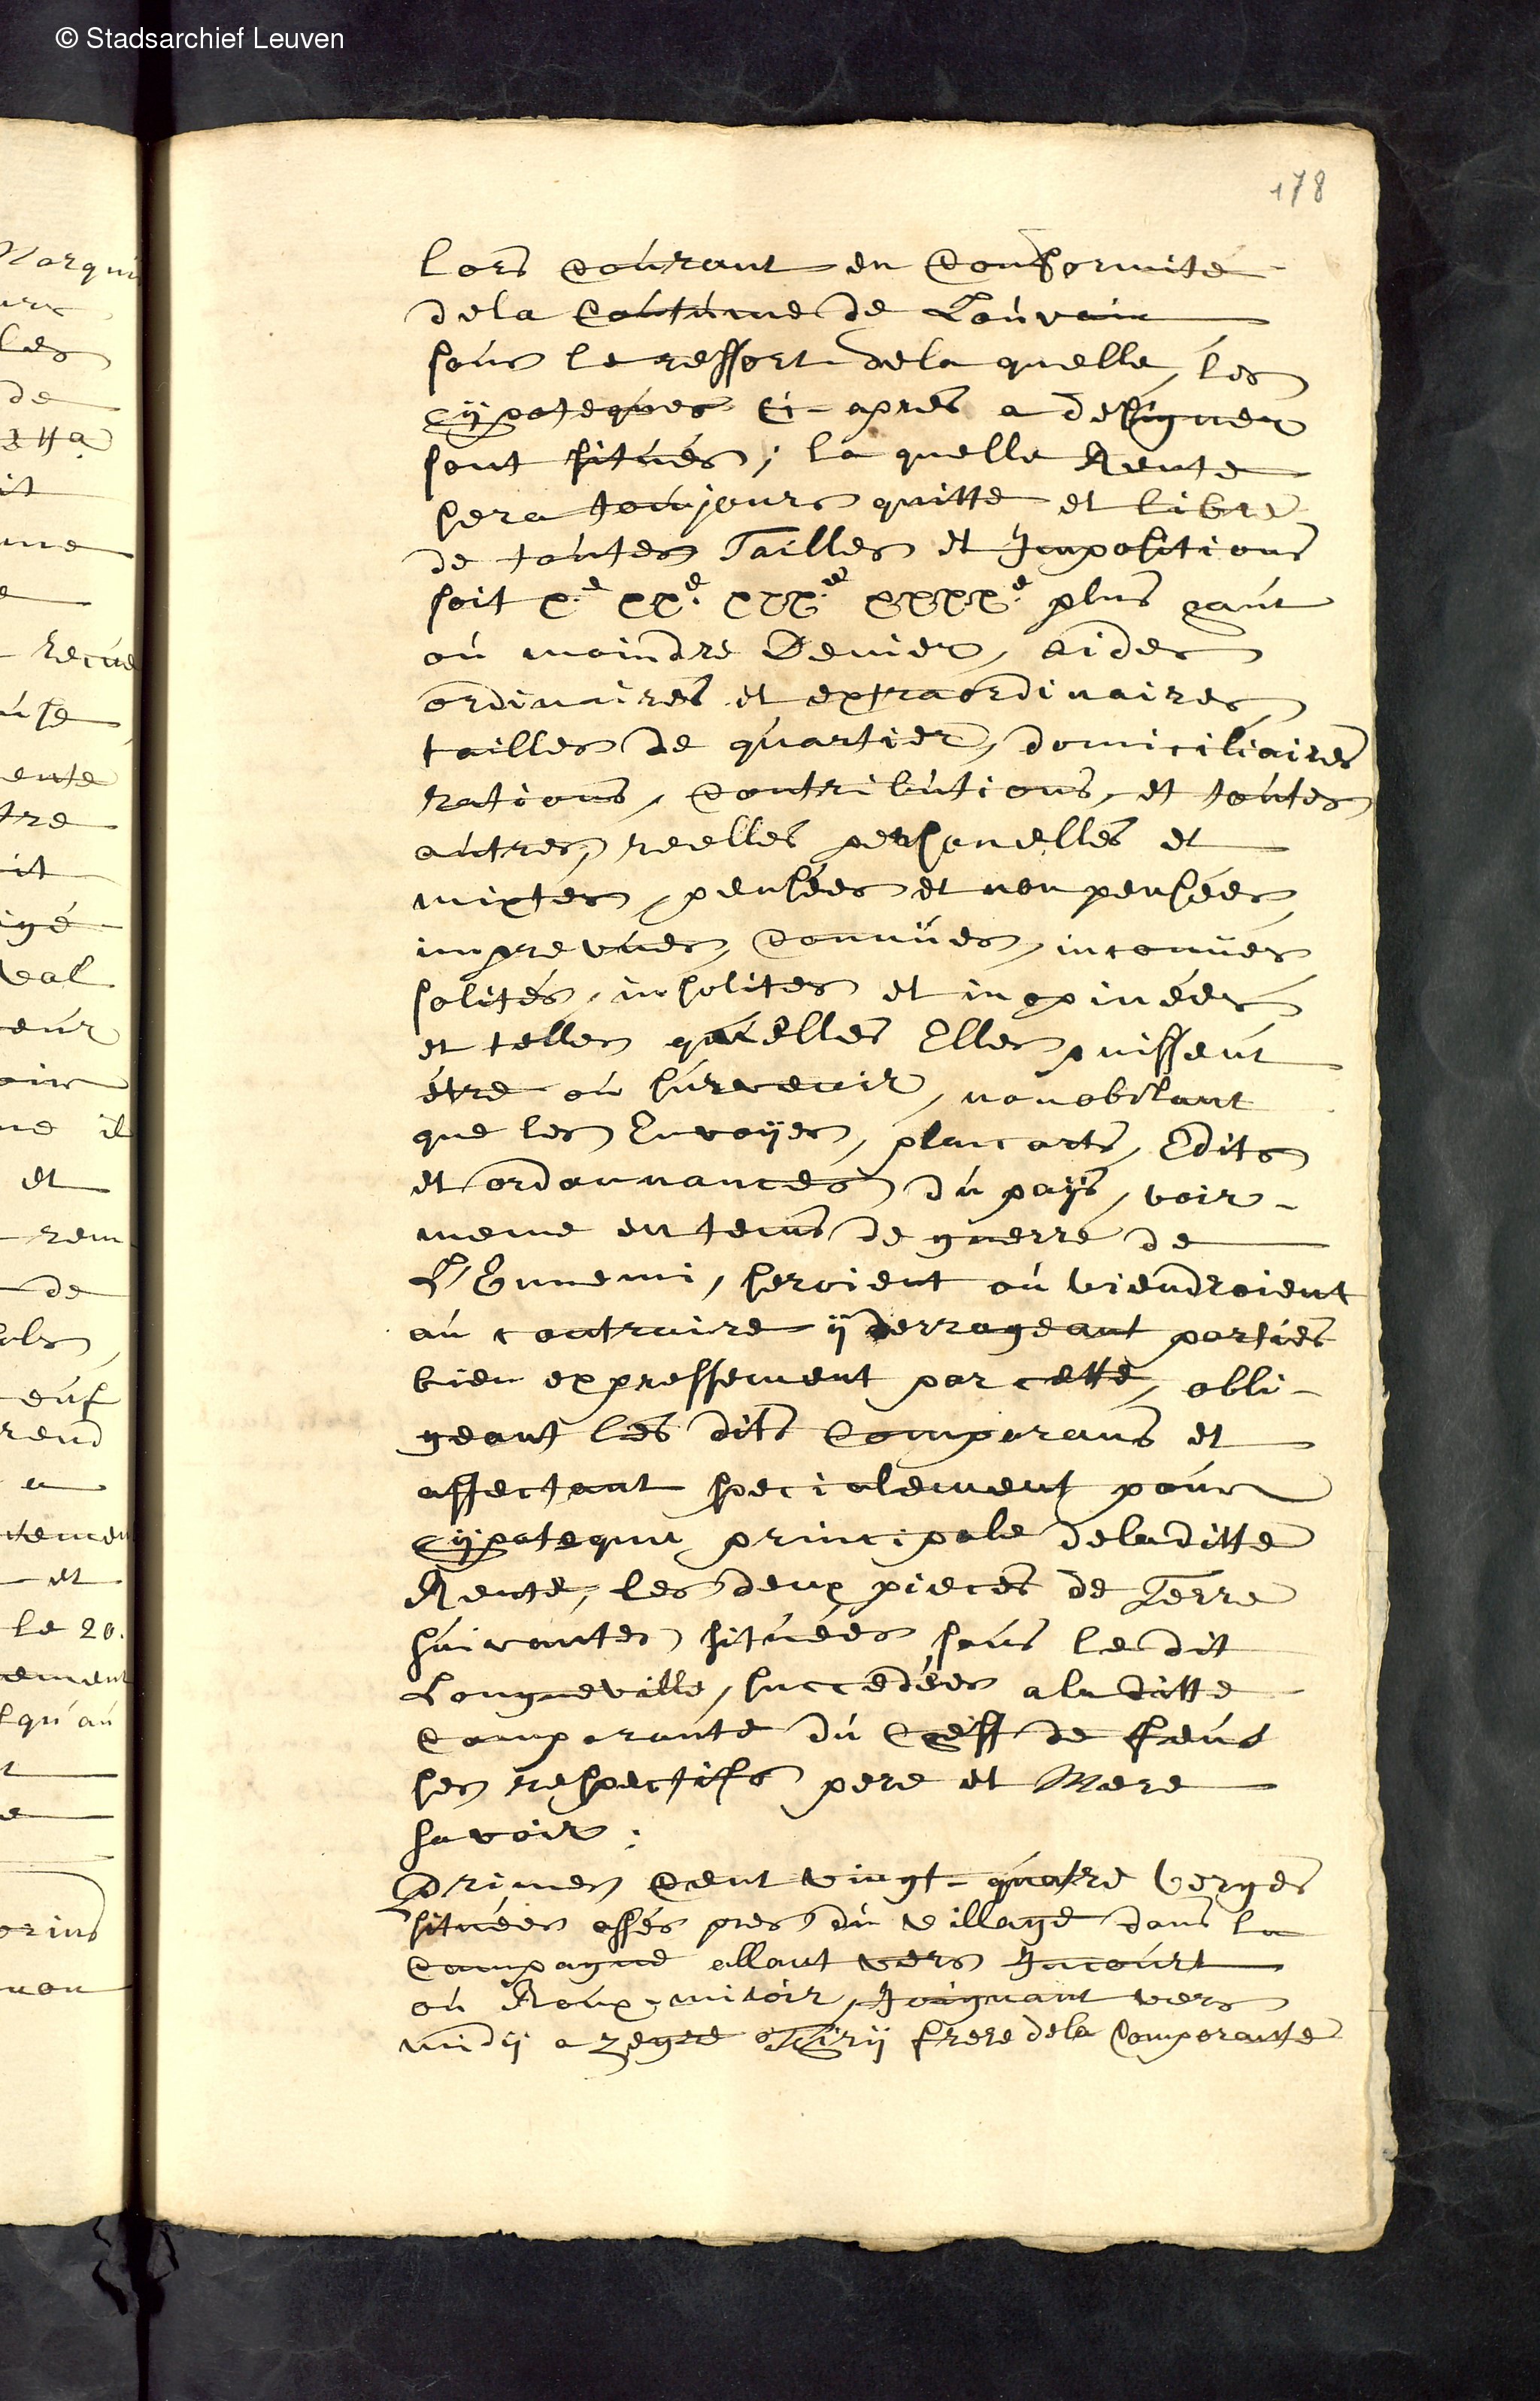 © Stadsarchief Leuven
178
lors courant en conformité
dela coutume de Louvain
sous le ressort dela quelle les
hÿpoteques ci-apres a designer
sont situés; la quelle Rente
sera toujours quitte et libre
de toutes Tailles et Impositions
soit X.e XX.e XXX.e XXXX.e plus haut
ou moindre Denier, aides
ordinaires et extraordinaires
tailles de quartier, domiciliaires
rations, contributions, et toutes
autres, reelles personelles et
mixtes, pensées et non pensées
imprevues, connües, inconües
solités, insolites et inopinées
et telles qu'elles Elles puissent
étre ou survenir, nonobstant
que les Envoÿes, plaicarts, Edits
et ordonnances du païjs, voir-
meme en tems de guerre de
L'Ennemi, seroient ou viendroient
au contraire ÿ derrogeant parties
bien expressement par cette, obli-
geant les dits Comparans et
affectant specialement pour
hÿpoteque principale deladitte
Rente, les deux pieces de Terre
suivantes situées sous le dit
Longueville, succedées a la ditte
comparante du cheff de feus
ses respectifs pere et Mere
savoir:
Primes cent vingt-quatre verges
situées assés pres du village dans la
campagne allant vers Incourt
ou Roux-miroir, Joignant vers
midÿ a Zegre Thirÿ frere dela Comparante